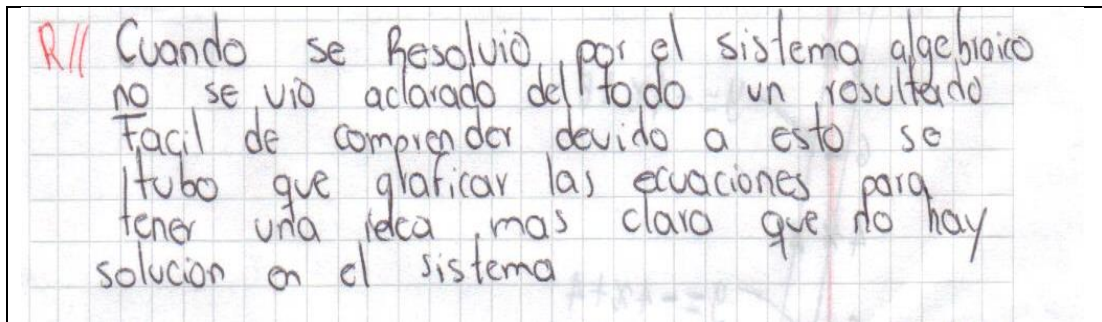 R// Cuando se Resolvio por el sistema algebraico
no se vio aclarado del todo un resultado
Facil de comprender devido a esto se
tubo que graficar las ecuaciones para
tener una idea mas clara que no hay
solucion en el sistema